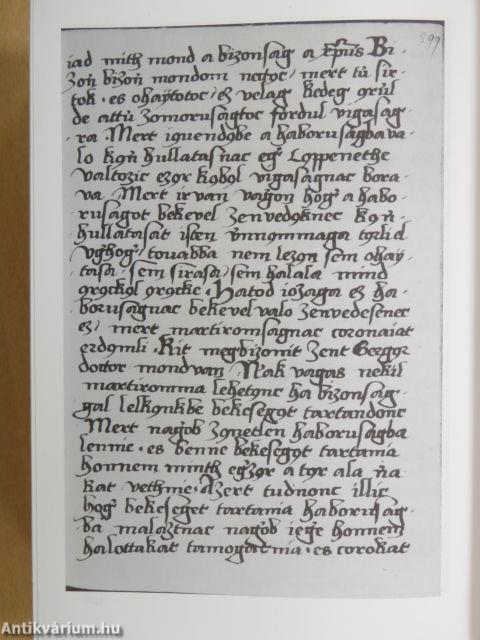 599
iad mith mond a bizonsag a xpüs Bi-
zoń bizoń mondom nectoc / mert tü sir-
tok · es ohaÿtotoc / ez velag kedeg ôrûl
de attü zomorusagtoc fordul vigasag-
ra Mert iquendôbe a haborusagba va-
lo kôń hullatasnac egʼ Lôppenethe
valtozic ezor kôbôl vigasagnac bora-
va. Mert ir van vaǵon hogʼ a habo-
rusagot bekevel zenvedôknec kôń-
hullatasat isten ônnommaga tôrlid
vǵhogʼ / touabba nem lezon sem ohaÿ-
tasa / sem sirasa / sem halala mind
ôrôckôl ôrôcke · Hatod iozaga ez ha-
borusagnac bekevel valo zenvedesenec
ez / mert martiromsagnac coronaiat
erdômli · Kit megbizonit Zent Gergôr
doctor mondvan Nak vagas nekil
martiromma lehetônc ha bizonsag-
gal lelkônkbe bekesegôt tartandonc
Mert nagob zônetlen haborusagba
lennie · es benne bekesegôt tartania
honnem minth egʼzor a tôr ala ńa-
kat vethnie · Azert tudnonc illic
hogʼ bekeseget tartania haborusag-
ba malaztnac nagob iegʼe honnem
halottakat tamogatnia · es corokat
Antikvárium.hu